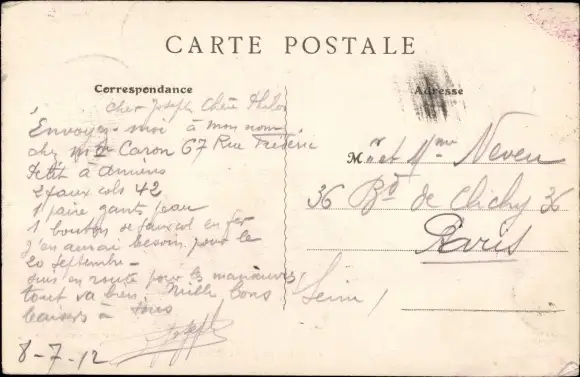 CARTE POSTALE
Correspondance
Adresse
Cher Joseph Chère
Envoyez-moi à mon nom
chez Mr Caron 67 Rue Frédéric
Petit à Amiens
2 faux cols 42
1 paire gants peau
1 bouton de faux col en fer
J'en aurai besoin pour le
20 septembre -
suis en route pour les manœuvres
tout va bien. Mille bons
baisers à tous
Joseph
8-7-12
Mr et Mme Neveu
36 Bd de Clichy 36
Paris
Seine